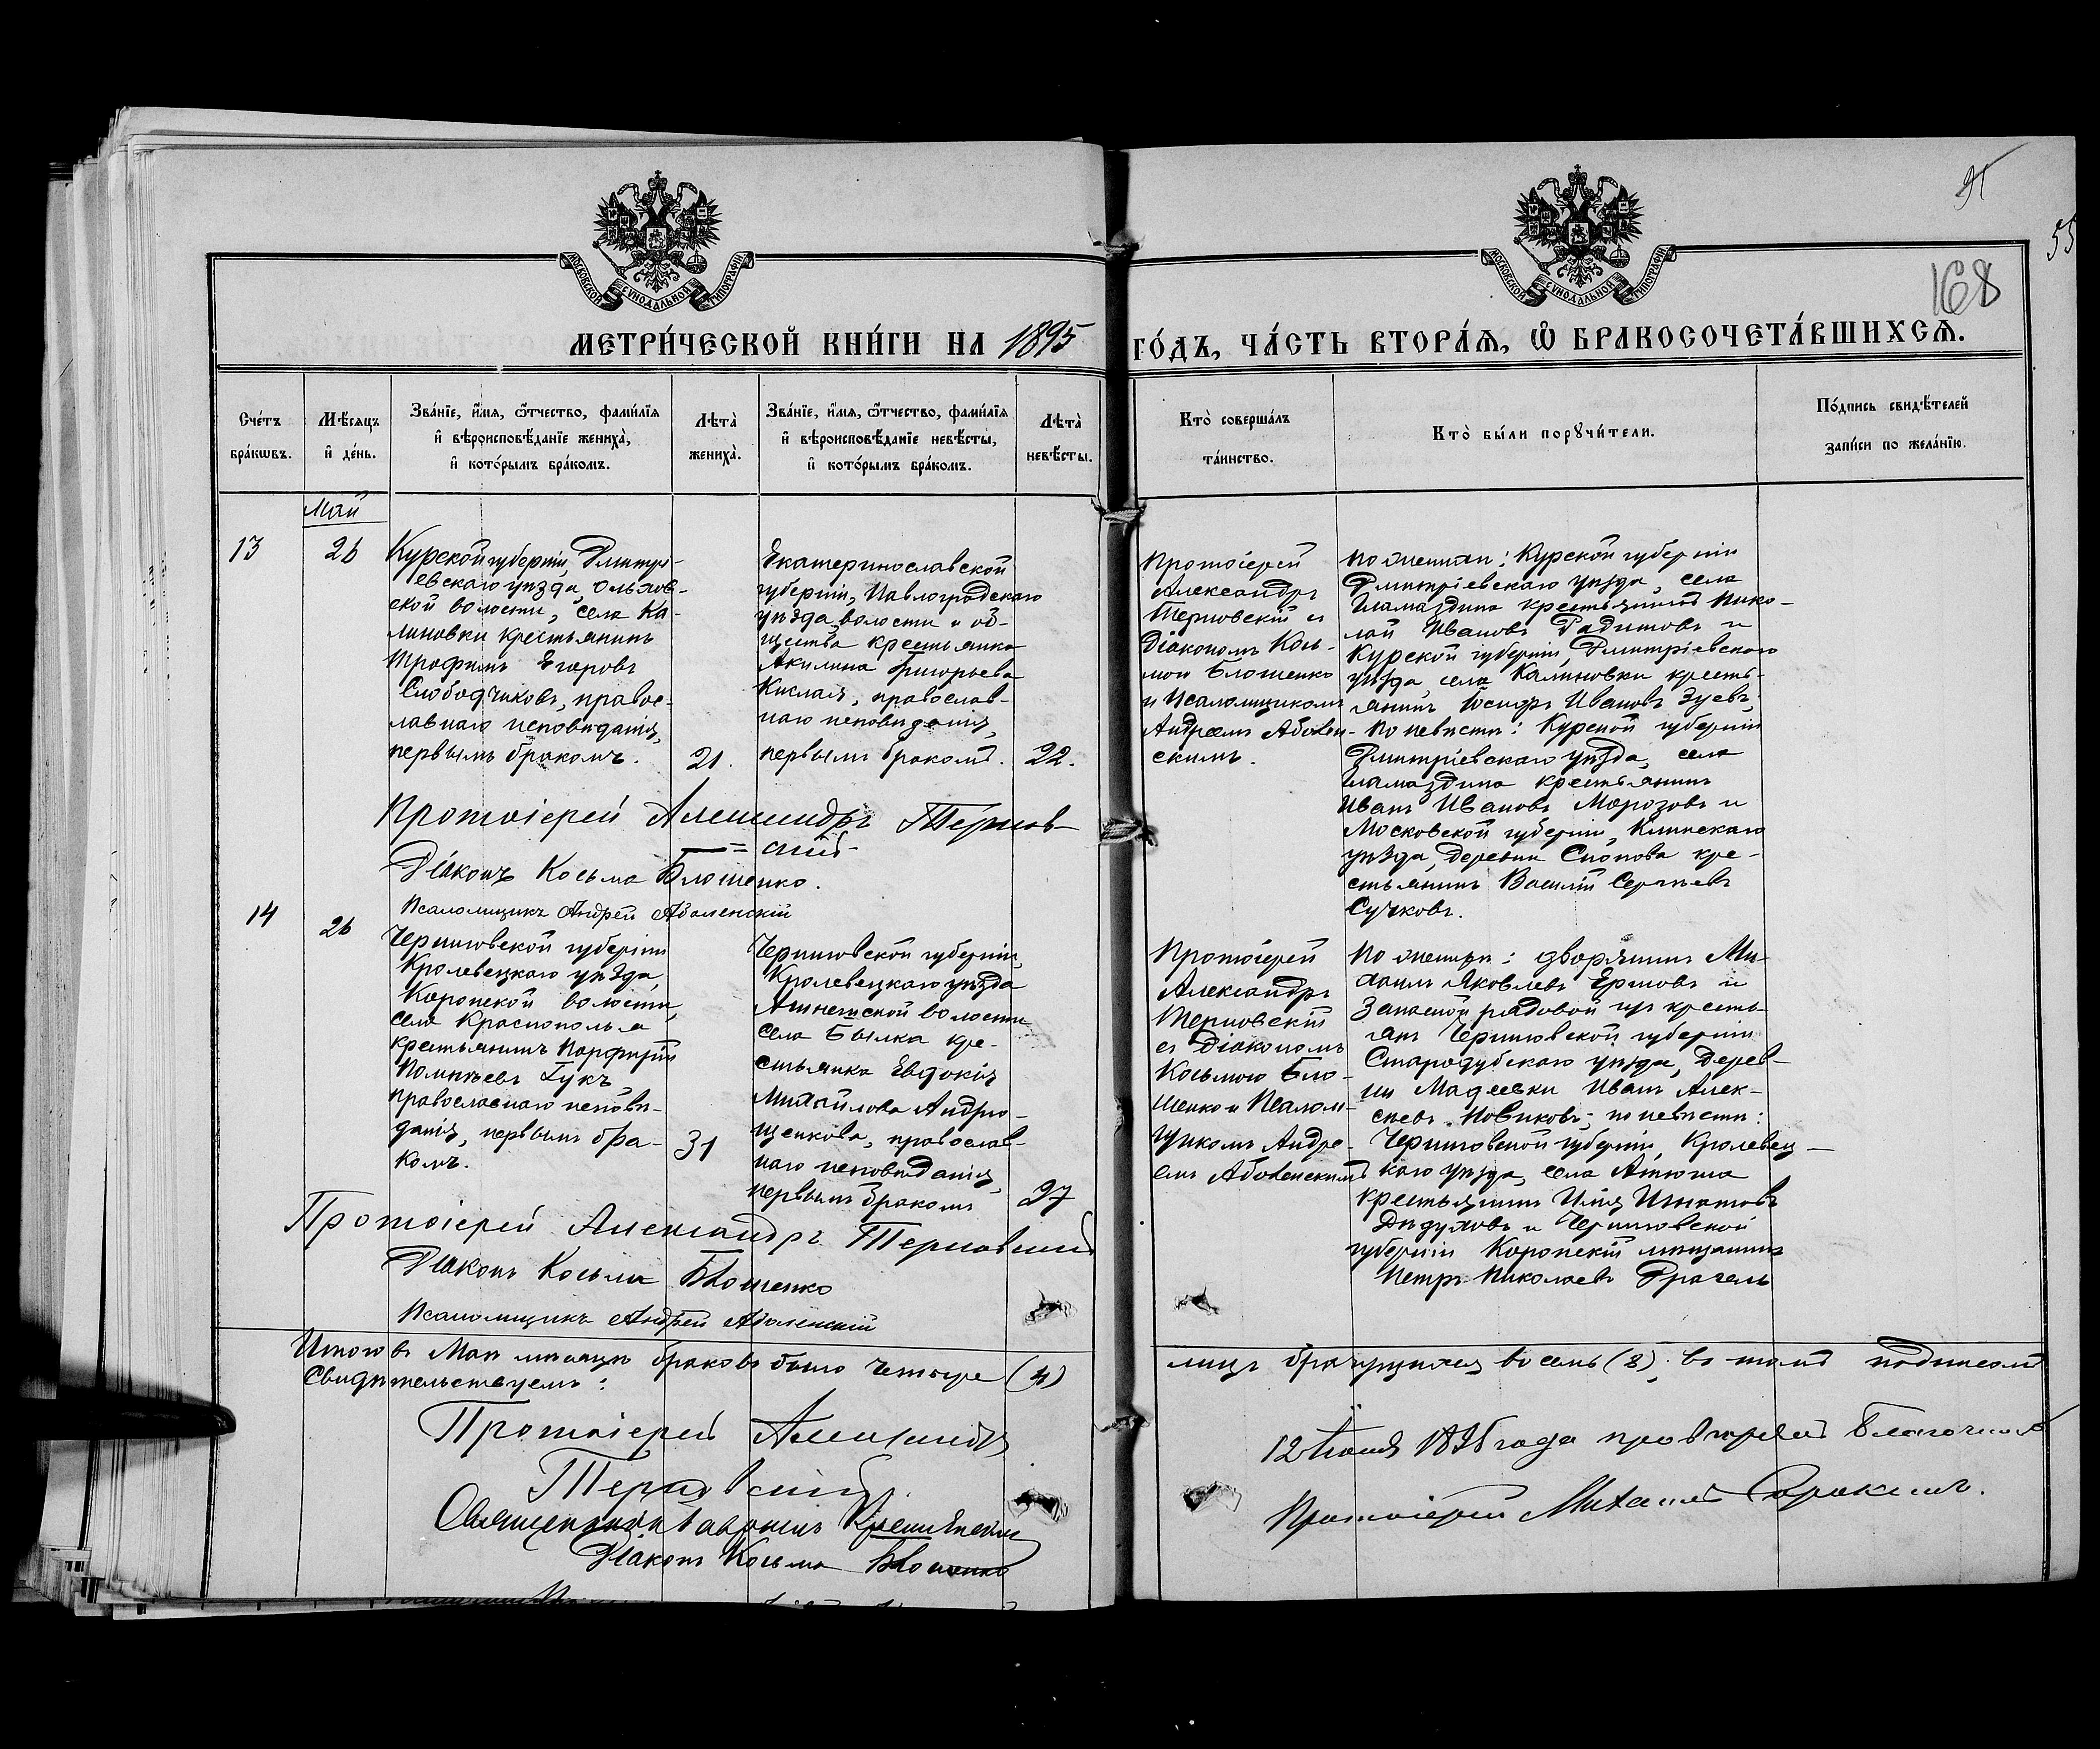 МОСКОВСКОЙ СѴНОДАЛЬНОЙ ТИПОГРАФІИ
МОСКОВСКОЙ СѴНОДАЛЬНОЙ ТИПОГРАФІИ
55
168
МЕТРИ́ЧЕСКОЙ КНИ́ГИ НА 1895 ГО́ДЪ, ЧА́СТЬ ВТОРА́Я, Ѽ БРАКОСОЧЕТА́ВШИХСЯ.
Сче́тъ бра́кѡвъ.
Мѣ́сяцъ и҆ де́нь.
Зва́нїе, и҆́мя, ѻ҆́тчество, фами́лїя
и҆ вѣроисповѣ́данїе жениха̀,
и҆ кото́рымъ бра́комъ.
Лѣта̀ жениха̀.
Зва́нїе, и҆́мя, ѻ҆́тчество, фами́лїя
и҆ вѣроисповѣ́данїе невѣ́сты,
и҆ кото́рымъ бра́комъ.
Лѣта̀ невѣ́сты.
Кто̀ соверша́лъ
та́инство.
Кто̀ бы́ли порꙋчи́тели.
По́дпись свидѣ́телей
за́писи по жела́нїю.
Май
13
26
Курской губерніи, Дмитрі-
евскаго уѣзда, Ольхов-
ской волости, села Ка-
линовки крестьянинъ
Трофимъ Егоровъ
Слободчиковъ, правос-
лавнаго исповѣданія,
первымъ бракомъ.
21.
Екатеринославской
губерніи, Павлоградскаго
уѣзда, волости и об-
щества крестьянка
Акилина Григорьева
Кислая, православ-
наго исповѣданія,
первымъ бракомъ.
22.
Протоіерей
Александръ
Терновскій съ
Діакономъ Кось-
мою Блошенко
и Псаломщикомъ
Андреемъ Аболен-
скимъ.
По женихѣ: Курской губерніи
Дмитріевскаго уѣзда, села
Гламаздина крестьянинъ Нико-
лай Ивановъ Радитовъ и
Курской губерніи, Дмитріевскаго
уѣзда села Калиновки кресть-
янинъ Іосифъ Ивановъ Зуевъ;
по невѣстѣ: Курской губерніи
Дмитріевскаго уѣзда, села
Гламаздина крестьянинъ
Иванъ Ивановъ Морозовъ и
Московской губерніи, Клинскаго
уѣзда, деревни Снопова кре-
стьянинъ Василій Сергѣевъ
Сучковъ.
Протоіерей Александръ Тернов-
скій
Діаконъ Косьма Блошенко.
Псаломщикъ Андрей Аболенскій
14
26
Черниговской губерніи
Кролевецкаго уѣзда,
Коропской волости,
села Краснополья
крестьянинъ Порфирій
Помпѣевъ Гукъ,
православнаго исповѣ-
данія, первымъ бра-
комъ.
31
Черниговской губерніи,
Кролевецкаго уѣзда
волости
села Былка кре-
стьянка Евдокія
Михайлова Андрю-
щенкова, православ-
наго исповѣданія,
первымъ бракомъ
27
Протоіерей
Александръ
Терновскій
съ Діакономъ
Косьмою Бло-
шенко и Псалом-
щикомъ Андре-
емъ Аболенскимъ
По женихѣ: дворянинъ Ми-
хаилъ Яковлевъ Ершовъ и
Запасной рядовой изъ кресть-
янъ Черниговской губерніи
Стародубскаго уѣзда, дерев-
ни Мадеевки Иванъ Алек-
сѣевъ Новиковъ; по невѣстѣ:
Черниговской губерніи, Кролевец-
каго уѣзда, села Атюша
крестьянинъ Илія Игнатовъ
Дѣдуховъ и Черниговской
губерніи Коропскій мѣщанинъ
Петръ Николаевъ Драгель
Протоіерей Александръ Терновскій
Діаконъ Косьма Блошенко
Псаломщикъ Андрей Аболенскій
Итого въ Маѣ мѣсяцѣ браковъ было четыре (4) лицъ брачущихся восемь (8); въ томъ подписомъ
Свидѣтельствуемъ:
Протоіерей Александръ
Терновскій
Священникъ Гавріилъ
Діаконъ Косьма Блошенко
12 Іюня 1895 года провѣрялъ Благочинный
Протоіерей Михаилъ